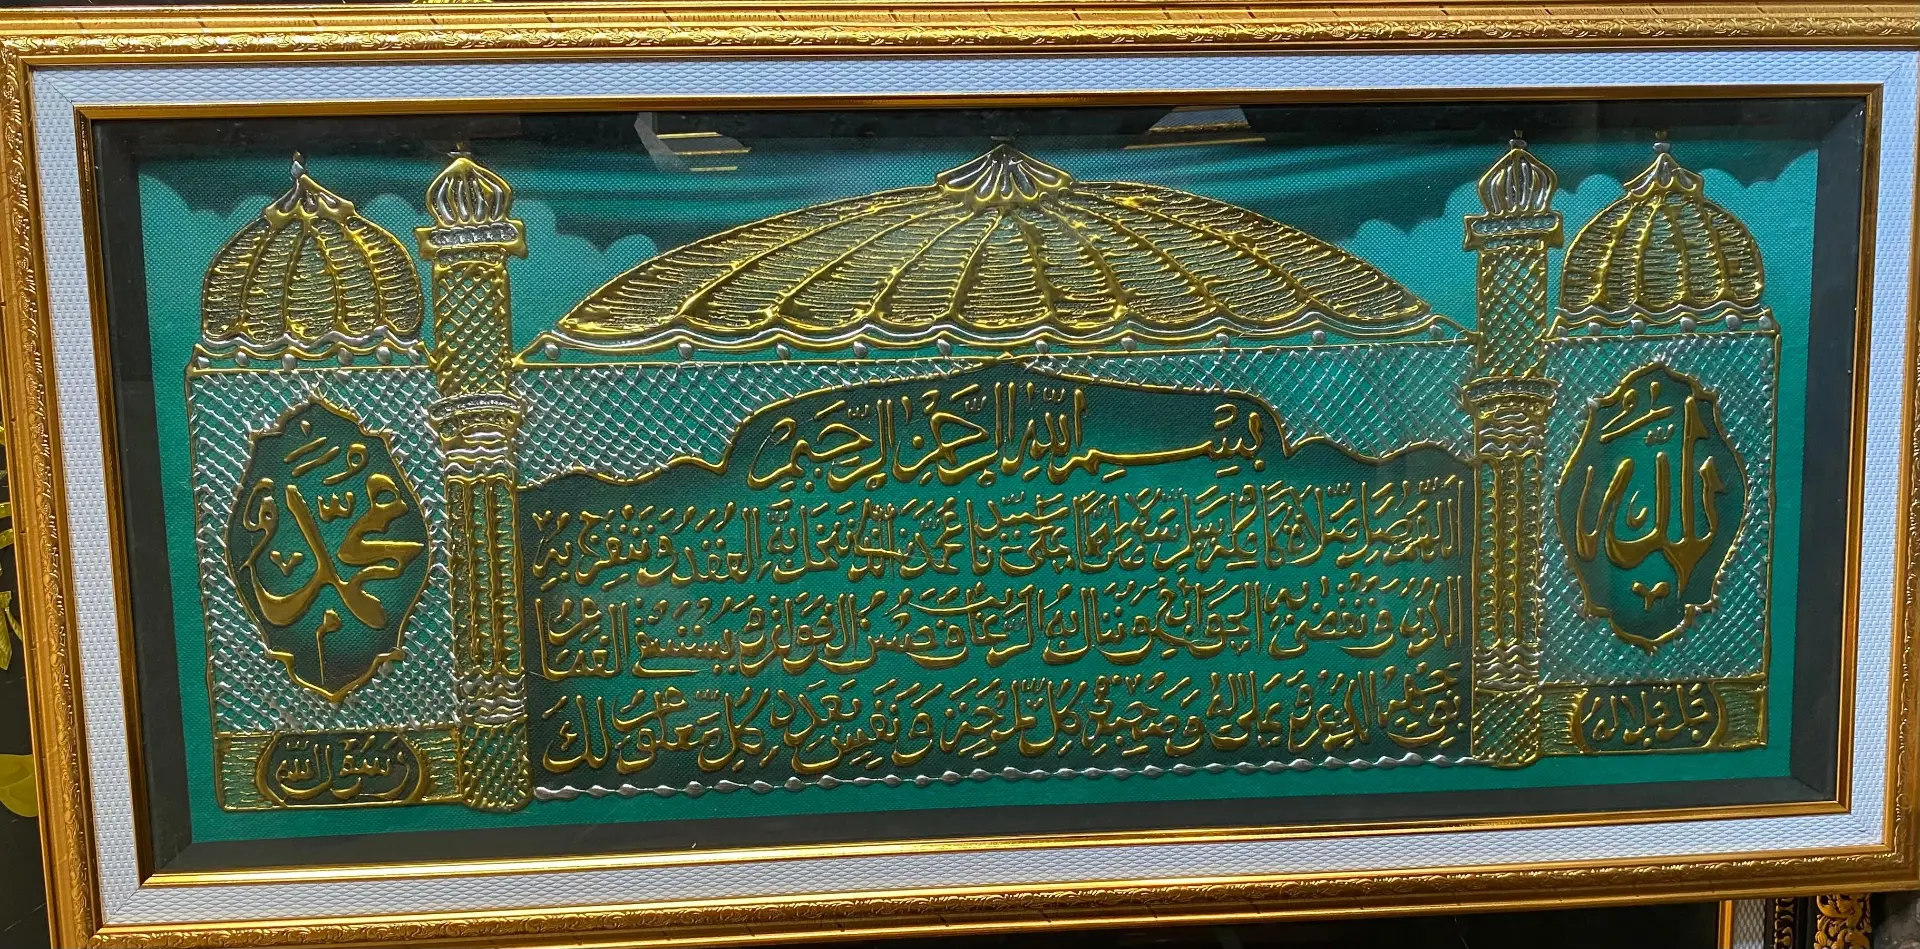 الله
جل جلاله
بِسْمِ اللهِ الرَّحْمٰنِ الرَّحِيْمِ
اللهم صل صلاة كاملة وسلم سلاما تاما على سيدنا محمد الذي تنحل به العقد وتنفرج به
الكرب وتقضى به الحوائج وتنال به الرغائب وحسن الخواتم ويستسقى الغمام
بوجهه الكريم وعلى اله وصحبه في كل لمحة ونفس بعدد كل معلوم لك
محمد
رسول الله